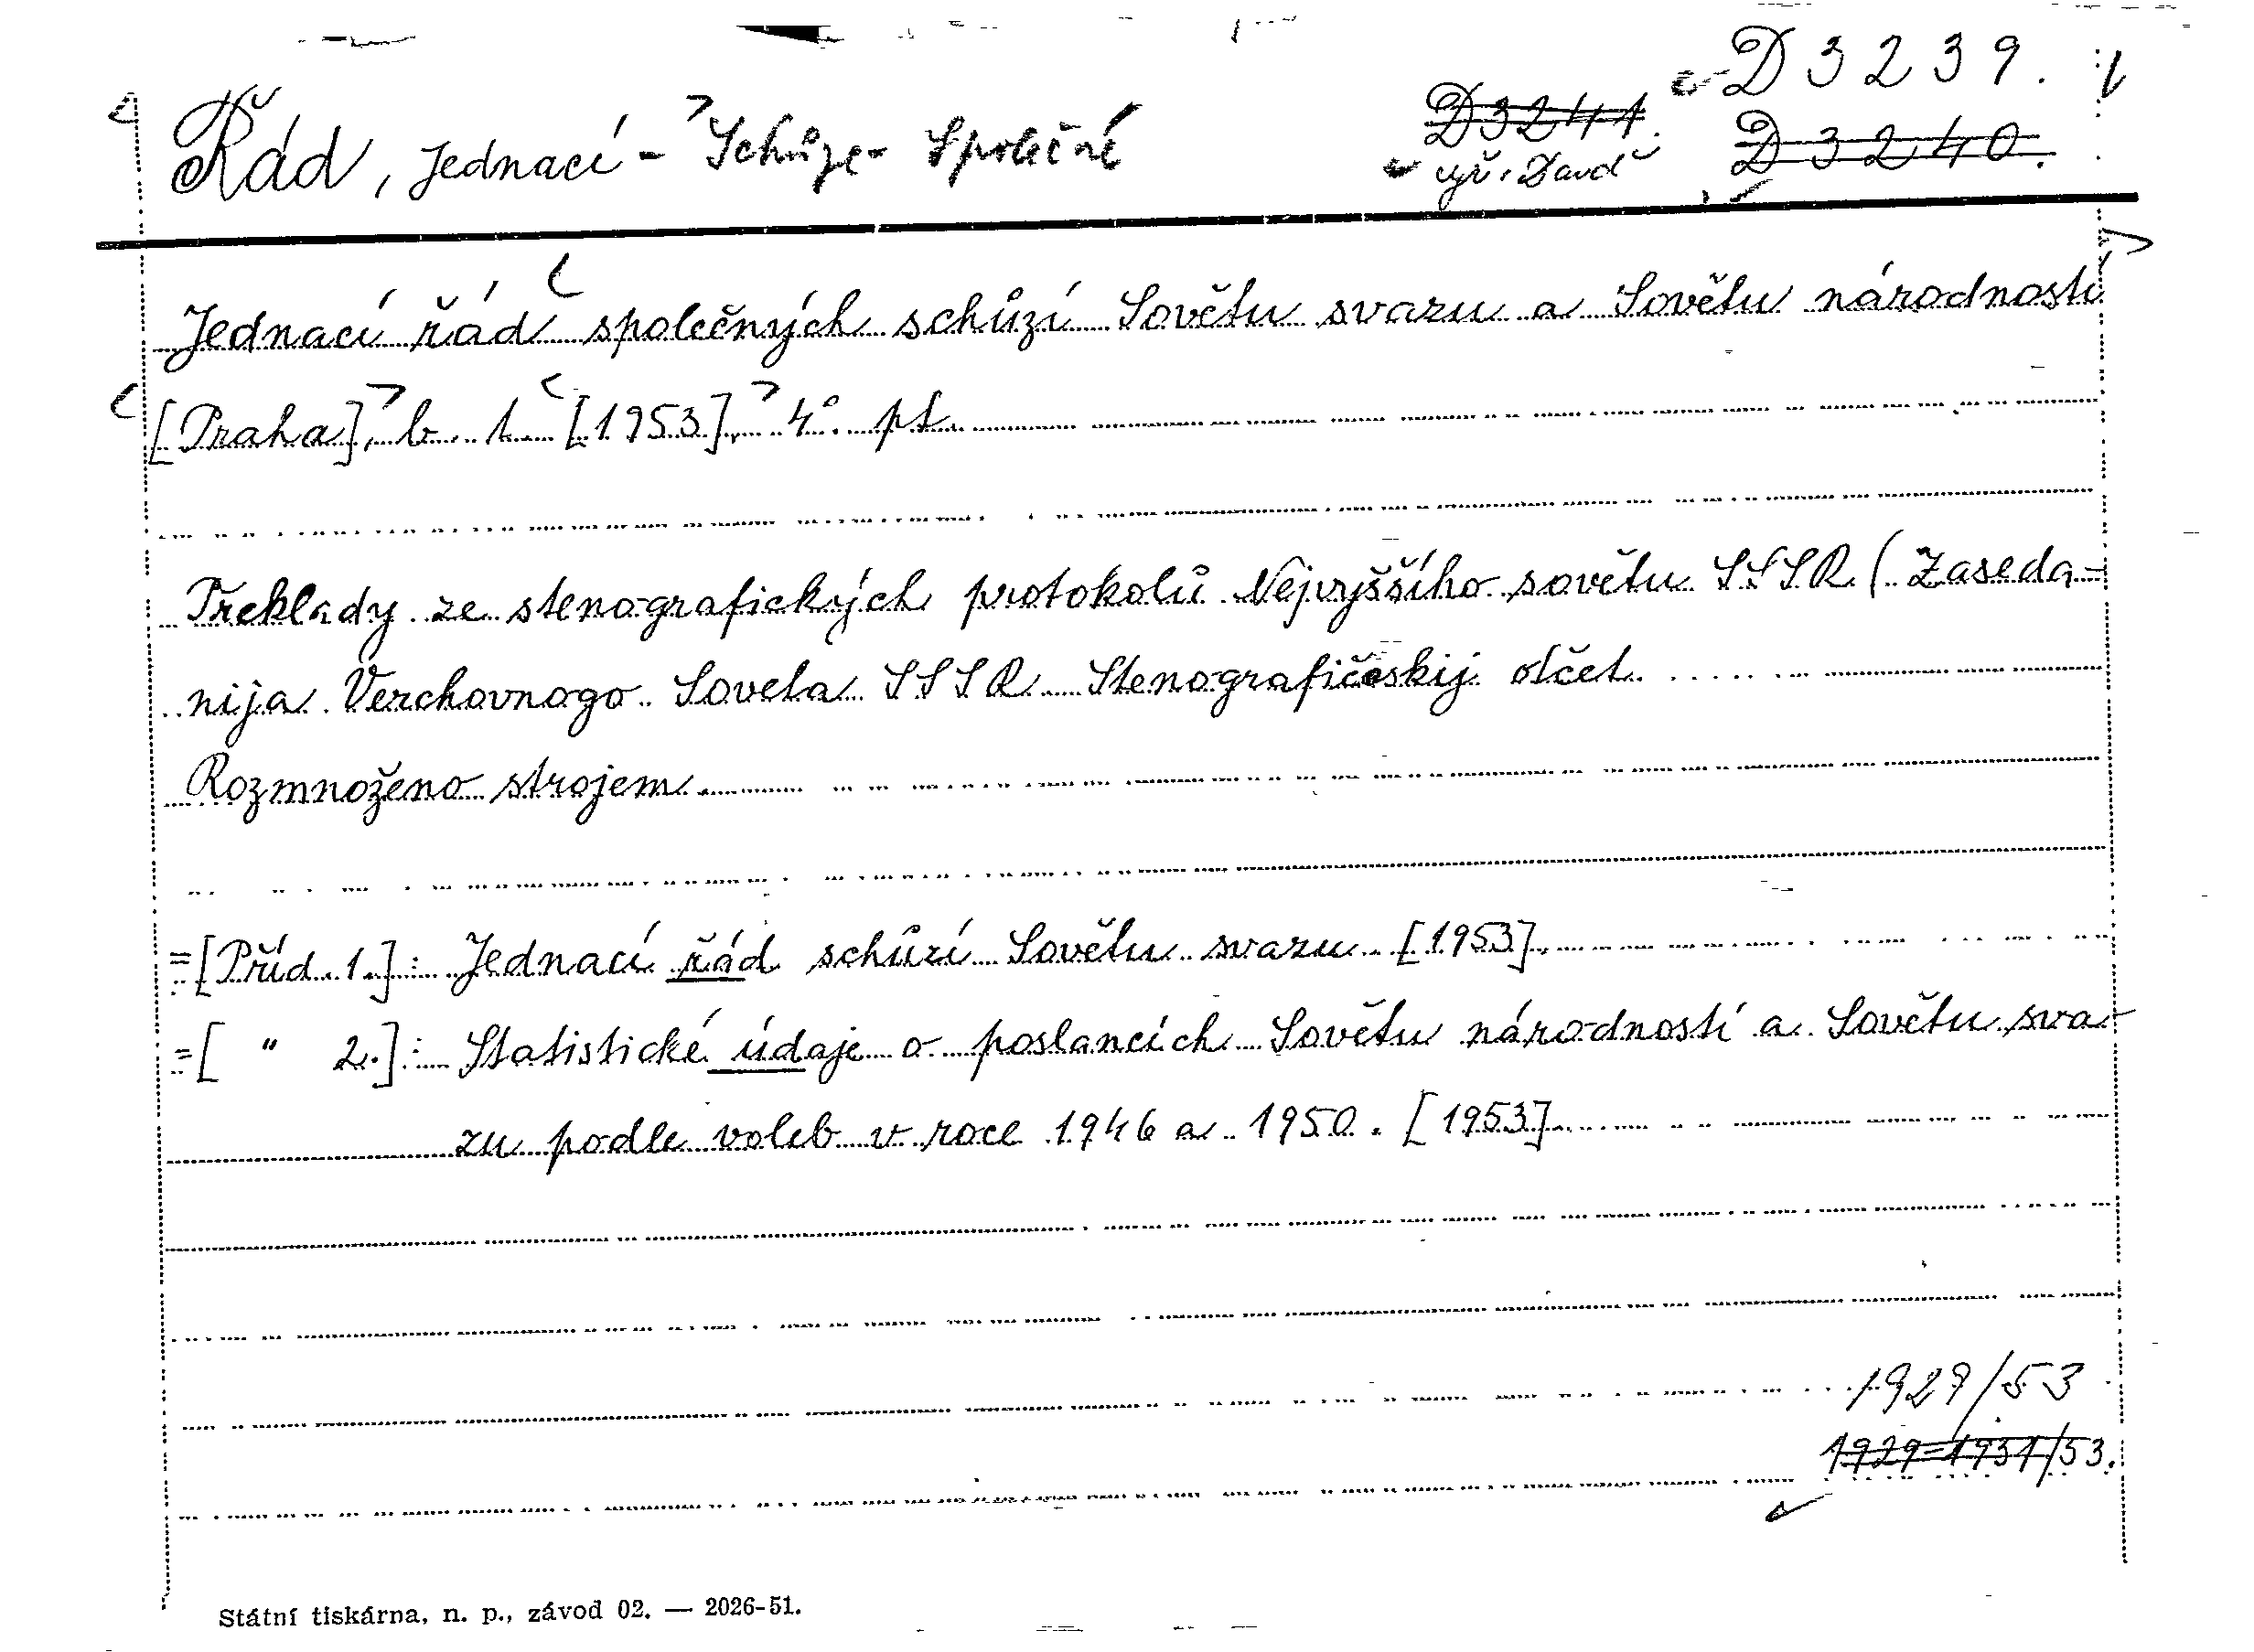 D 3239.
Řád, Jednací - Schůze - Společné
D 3241. D 3240.
vyř.
Jednací řád společných schůzí Sovětu svazu a Sovětu národností
[Praha], b. t. [1953], 4°. pt.
Překlady ze stenografických protokolů Nejvyššího sovětu SSSR (Zaseda-
nija Verchovnogo Soveta SSSR Stenografičeskij otčet
Rozmnoženo strojem
=[Příd. 1.]: Jednací řád schůzí Sovětu svazu [1953].
=[ " 2.]: Statistické údaje o poslancích Sovětu národností a Sovětu sva-
zu podle voleb v roce 1946 a 1950. [1953]
1929/53
1929=1931/53.
Státní tiskárna, n. p., závod 02. — 2026-51.